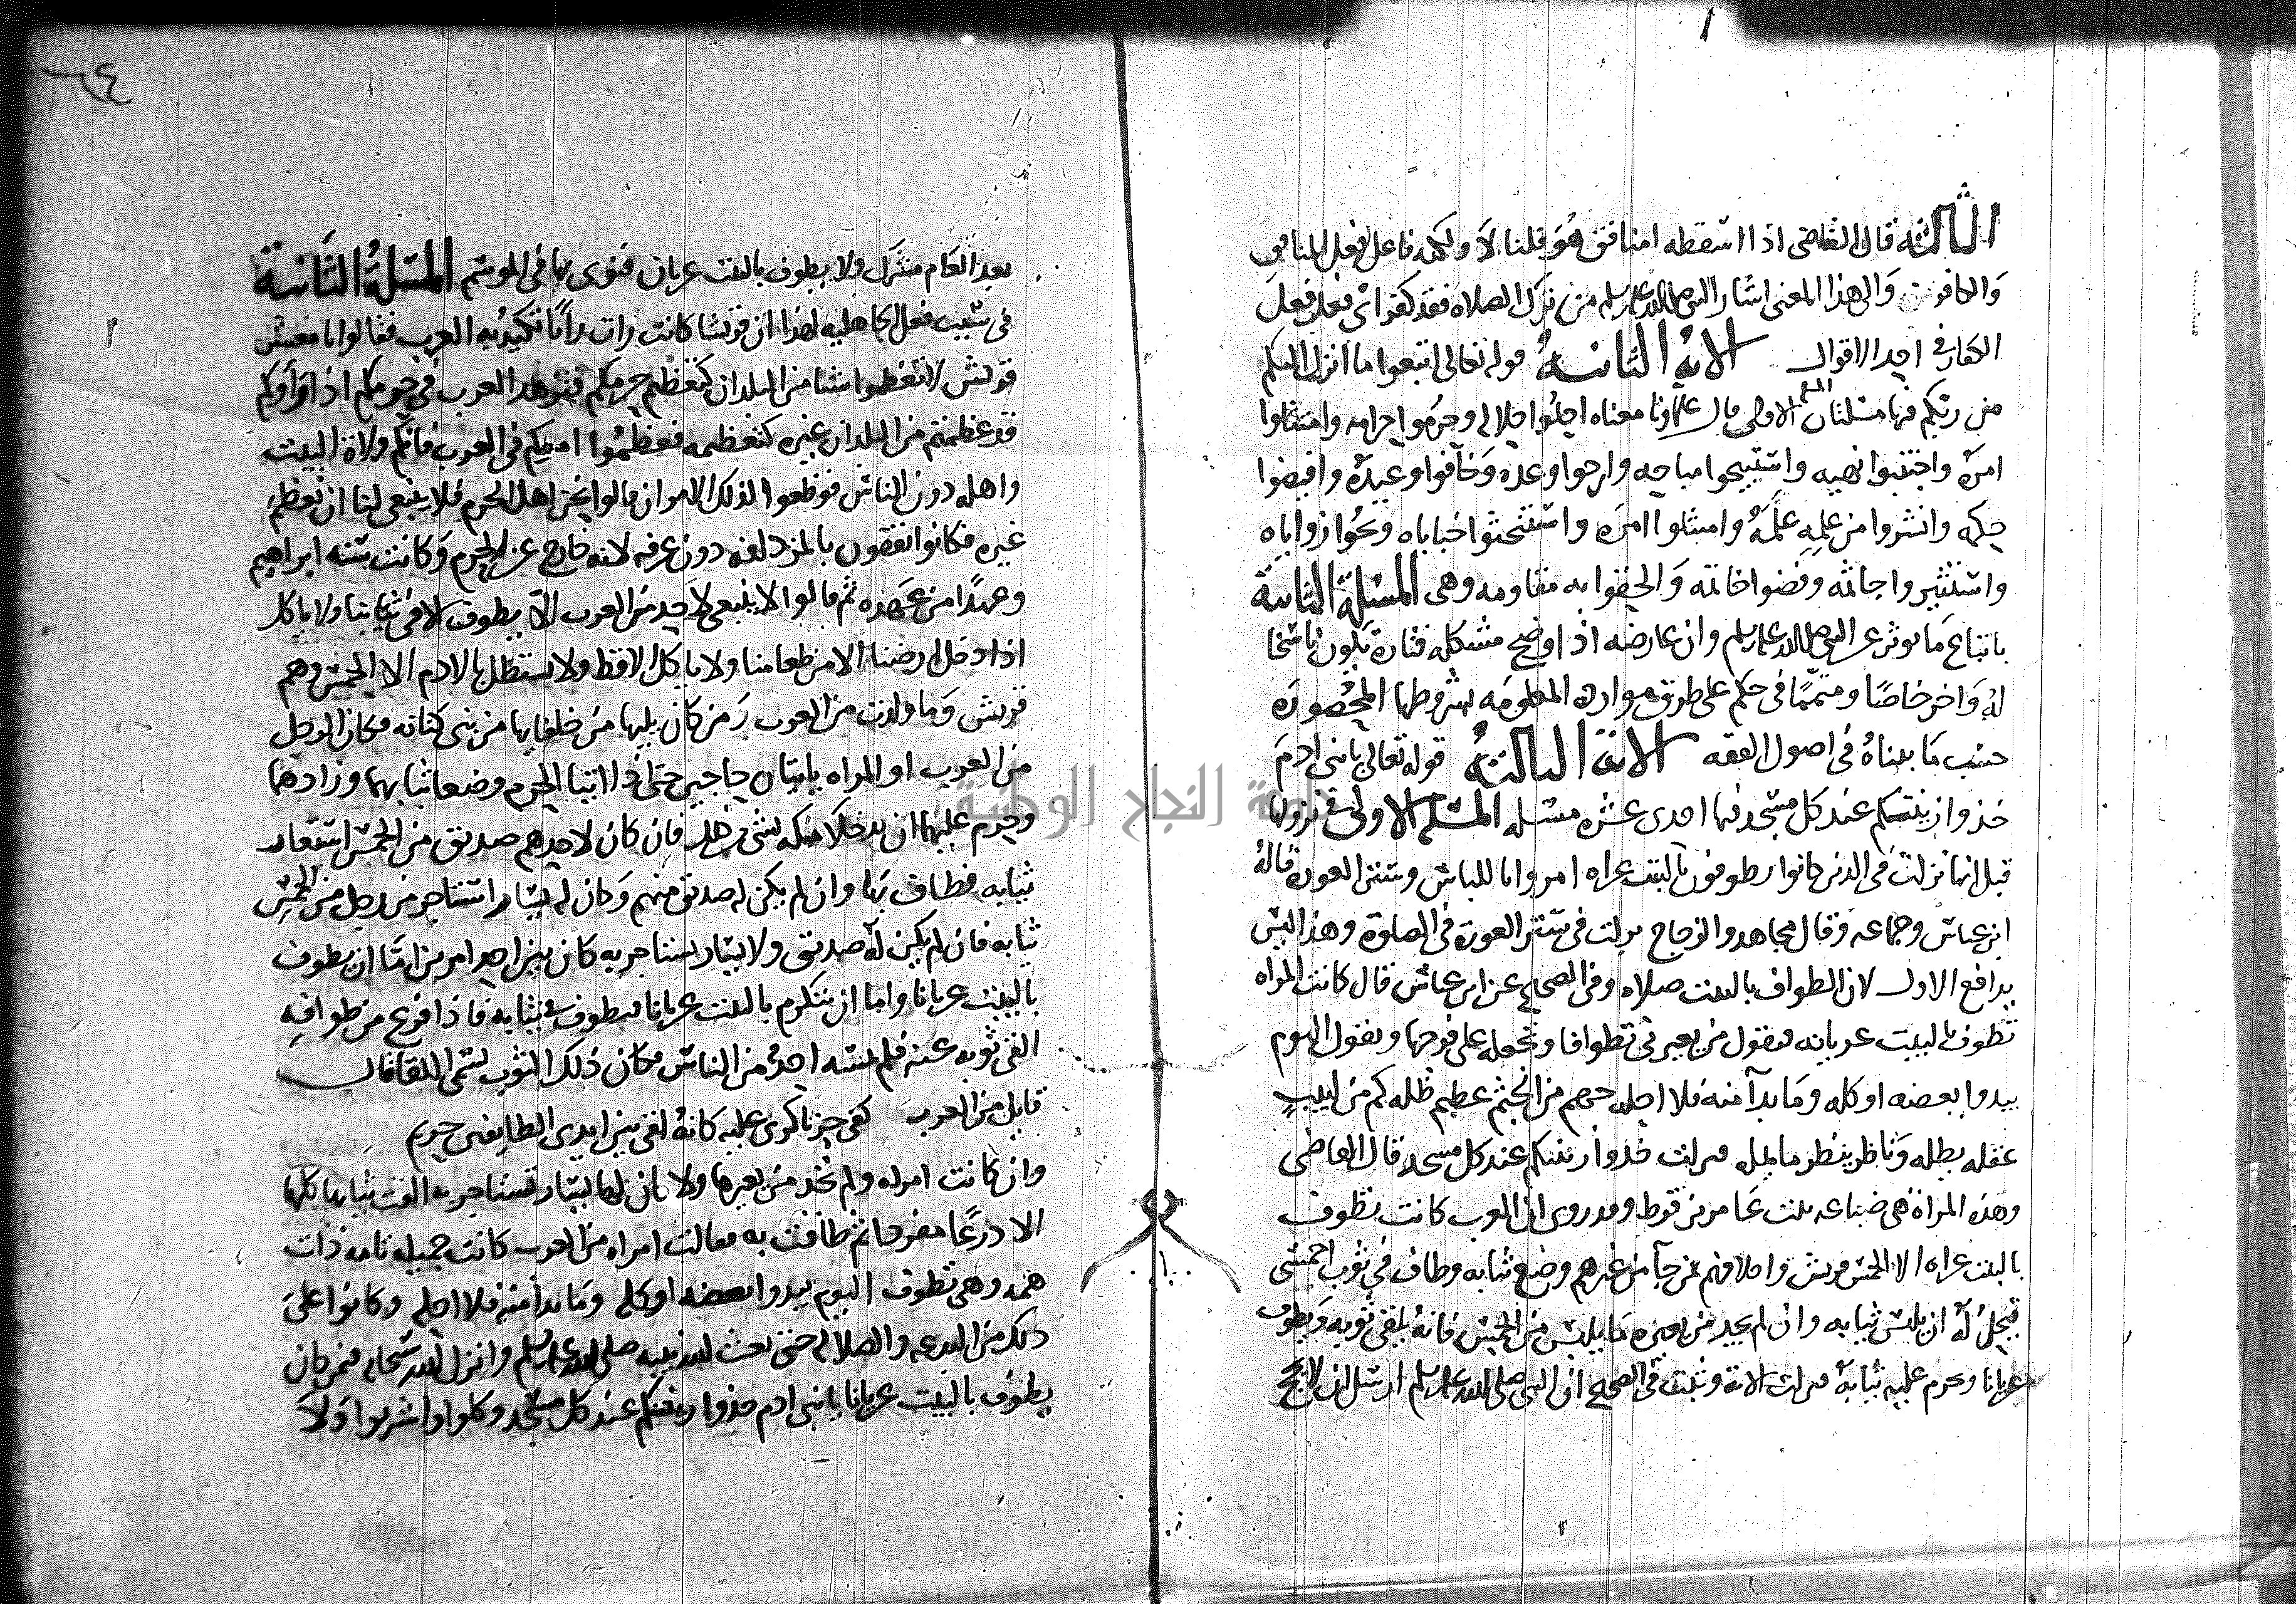 الثالثة قال القاضي اذا اسقطه امنافق هو قلنا لا ولكنه فاعل فعل المنافق
والكافر والى هذا المعنى اشار النبي صلى الله عليه وسلم من ترك الصلاه فقد كفر اي فعل فعل
الكفار في احد الاقوال الاية الثانية قوله تعالى اتبعوا ما انزل اليكم
من ربكم فيها مسلتان المسلة الاولى قال علماونا معناه احلوا حلاله وحرموا حرامه وامتثلوا
امره واجتنبوا نهيه واستبيحوا مباحه وارجوا وعده وخافوا وعيده واقتضوا
حكمه وانشروا من علمه علمه وامتثلوا امره واستنحثوا خباياه ونحوا زواياه
واستثيروا جاثمه وفضوا خاتمه والحقوا به مقاومه وهي المسلة الثانية
باتباع ما يوثر عن النبي صلى الله عليه وسلم وان عارضه اذ اوضح مشكله فتارة يكون ناسخا
له واخر خاصا ومتمما في حكم على طرق موارده المعلومه بشروطها المحصورة
حسب ما بيناه في اصول الفقه الاية الثالثة قوله تعالى يا بني ادم
خذوا زينتكم عند كل مسجد فيها احدى عشره مسله المسلة الاولى في نزولها
قيل انها نزلت في الذين كانوا يطوفون بالبيت عراه امروا باللباس وستر العورة قاله
ابن عباس وجماعه وقال مجاهد والزجاج نزلت في ستر العورة في الصلوة وهذا ليس
يدافع الاول لان الطواف بالبيت صلاه وفي الصحيح عن ابن عباس قال كانت المراه
تطوف بالبيت عريانه فتقول من يعيرني تطوافا وتجعله على فرجها وتقول اليوم
يبدوا بعضه او كله وما بدا منه فلا احله جهم من الجثم عظيم ظله كم من لبيب
عقله يظله وناظر ينظر ما يمله نزلت خذوا زينتكم عند كل مسجد قال القاضي
وهذه المراة هي ضباعه بنت عامر بن قرط وقد روى ان العرب كانت تطوف
بالبيت عراه الا الحمس قريش واحلافهم فمن جا من غيرهم وضع ثيابه وطاف في ثوب احمسي
فيحل له ان يلبس ثيابه وان لم يجد من يعيره ما يلبس من الحمس فانه يلقي ثوبه ويطوف
عريانا ويحرم عليه ثيابه فنزلت الاية وثبت في الصحيح ان النبي صلى الله عليه وسلم ارسل ان لا يحج
٦٤
بعد العام مشرك ولا يطوف بالبيت عريان فنودى بها في الموسم المسلة الثانية
في سبب فعل الجاهلية لهذا ان قريشا كانت رات رايا تكيد به العرب فقالوا يا معشر
قريش لا تعظموا شيا من البلدان كتعظيم حرمكم فتزهد العرب في حرمكم اذا راوكم
قد عظمتم من البلدان غيره كتعظيمه فعظموا امركم في العرب فانكم ولاة البيت
واهله دون الناس فوضعوا لذلك الامر ان قالوا نحن اهل الحرم فلا ينبغي لنا ان نعظم
غيره فكانوا يقفون بالمزدلفه دون عرفه لانه خارج عن الحرم وكانت سنه ابراهيم
وعهدا من عهده ثم قالوا لا ينبغي لاحد من العرب الا يطوف الا في ثيابنا ولا ياكل
اذا دخل ارضنا الا من طعامنا ولا ياكل الاقط ولا يستظل بالادم الا الحمس وهم
قريش وما ولدت من العرب ومن كان يليها من حلفايها من بني كنانه فكان الرجل
من العرب او المراه ياتيان حاجين حتى اذا اتيا الحرم وضعا ثيابهما وزادهما
وحرم عليهما ان يدخلا مكه بشي من ذلك فان كان لاحدهم صديق من الحمس استعار
ثيابه فطاف بها وان لم يكن له صديق منهم وكان له يسار استاجر من رجل من الحمس
ثيابه فان لم يكن له صديق ولا يسار يستاجر به كان بين احد امرين اما ان يطوف
بالبيت عريانا واما ان يتكرم بالبيت عريانا فيطوف في ثيابه فاذا فرغ من طوافه
القى ثوبه عنه فلم يمسه احد من الناس فكان ذلك الثوب يسمى اللقا قال
قايل من العرب كفى حزنا كرى عليه كانه لقى بين ايدي الطايفين حريم
وان كانت امراه ولم تجد من يعيرها ولا كان لها يسار تستاجر به القت ثيابها كلها
الا درعا مفرجا ثم طافت به فقالت امراه من العرب كانت جميله تامه ذات
همه وهي تطوف اليوم يبدوا بعضه او كله وما بدا منه فلا احله وكانوا على
ذلك من البدعه والضلاله حتى بعث الله نبيه صلى الله عليه وسلم وانزل الله سبحانه فمن كان
يطوف بالبيت عريانا يا بني ادم خذوا زينتكم عند كل مسجد وكلوا واشربوا ولا
جامعة النجاح الوطنية